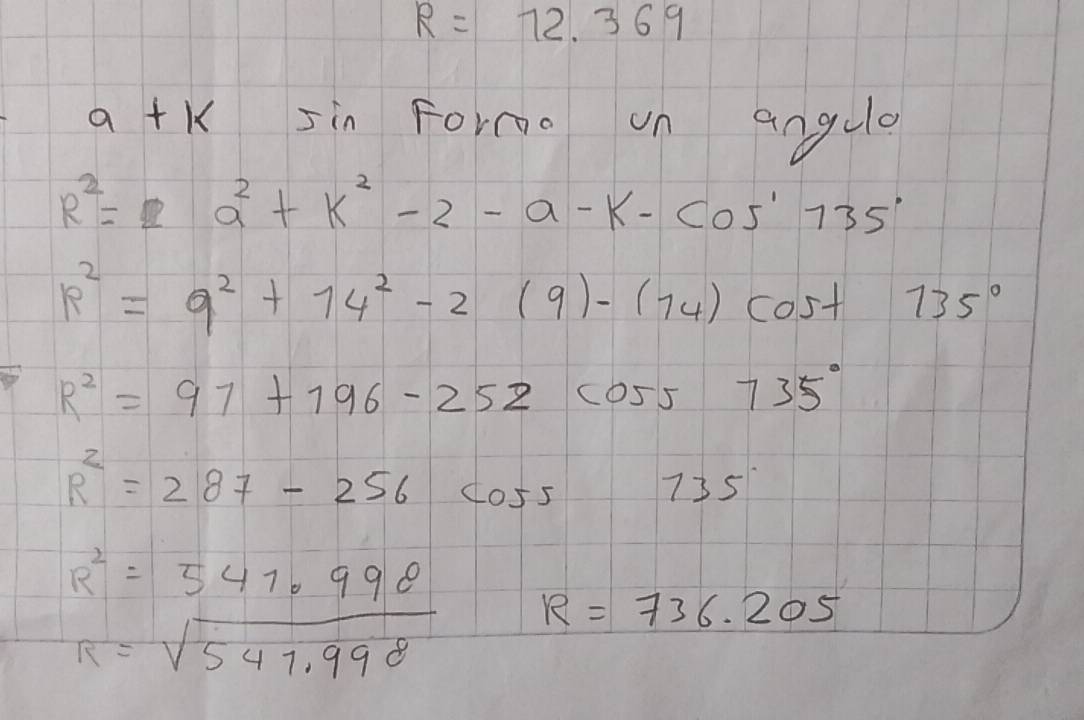 R = 12.369
a + K sin Forma un angulo
R² = a² + K² - 2 - a - K - Cos 135°
R² = 9² + 14² - 2 (9) - (14) cost 135°
R² = 91 + 196 - 252 coss 135°
R² = 287 - 256 coss 135°
R² = 541.998
R = √541.998 R = 136.205